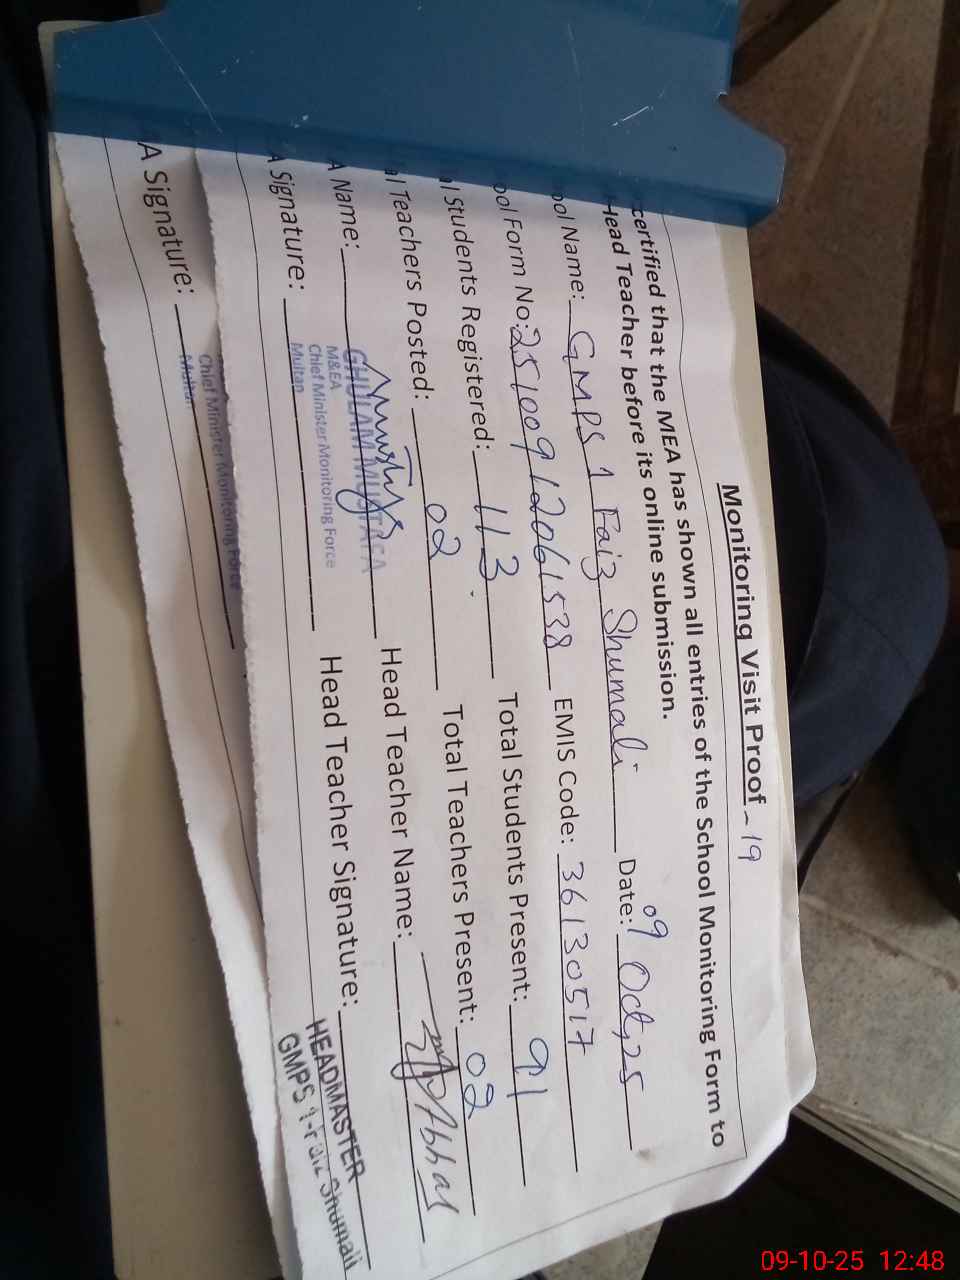 Monitoring Visit Proof - 19
certified that the MEA has shown all entries of the School Monitoring Form to
Head Teacher before its online submission.
ool Name: GMPS 1 Faiz Shumali Date: 09 Oct, 25
ool Form No: 25100912061538 EMIS Code: 36130517
al Students Registered: 113 Total Students Present: 91
al Teachers Posted: 02 Total Teachers Present: 02
A Name: GHULAM MUSTAFA Head Teacher Name: Abhas
M&EA
Chief Minister Monitoring Force
Multan
A Signature: Head Teacher Signature:
HEADMASTER
GMPS 1-Faiz Shumali
Chief Minister Monitoring Force
Multan
A Signature:
09-10-25 12:48